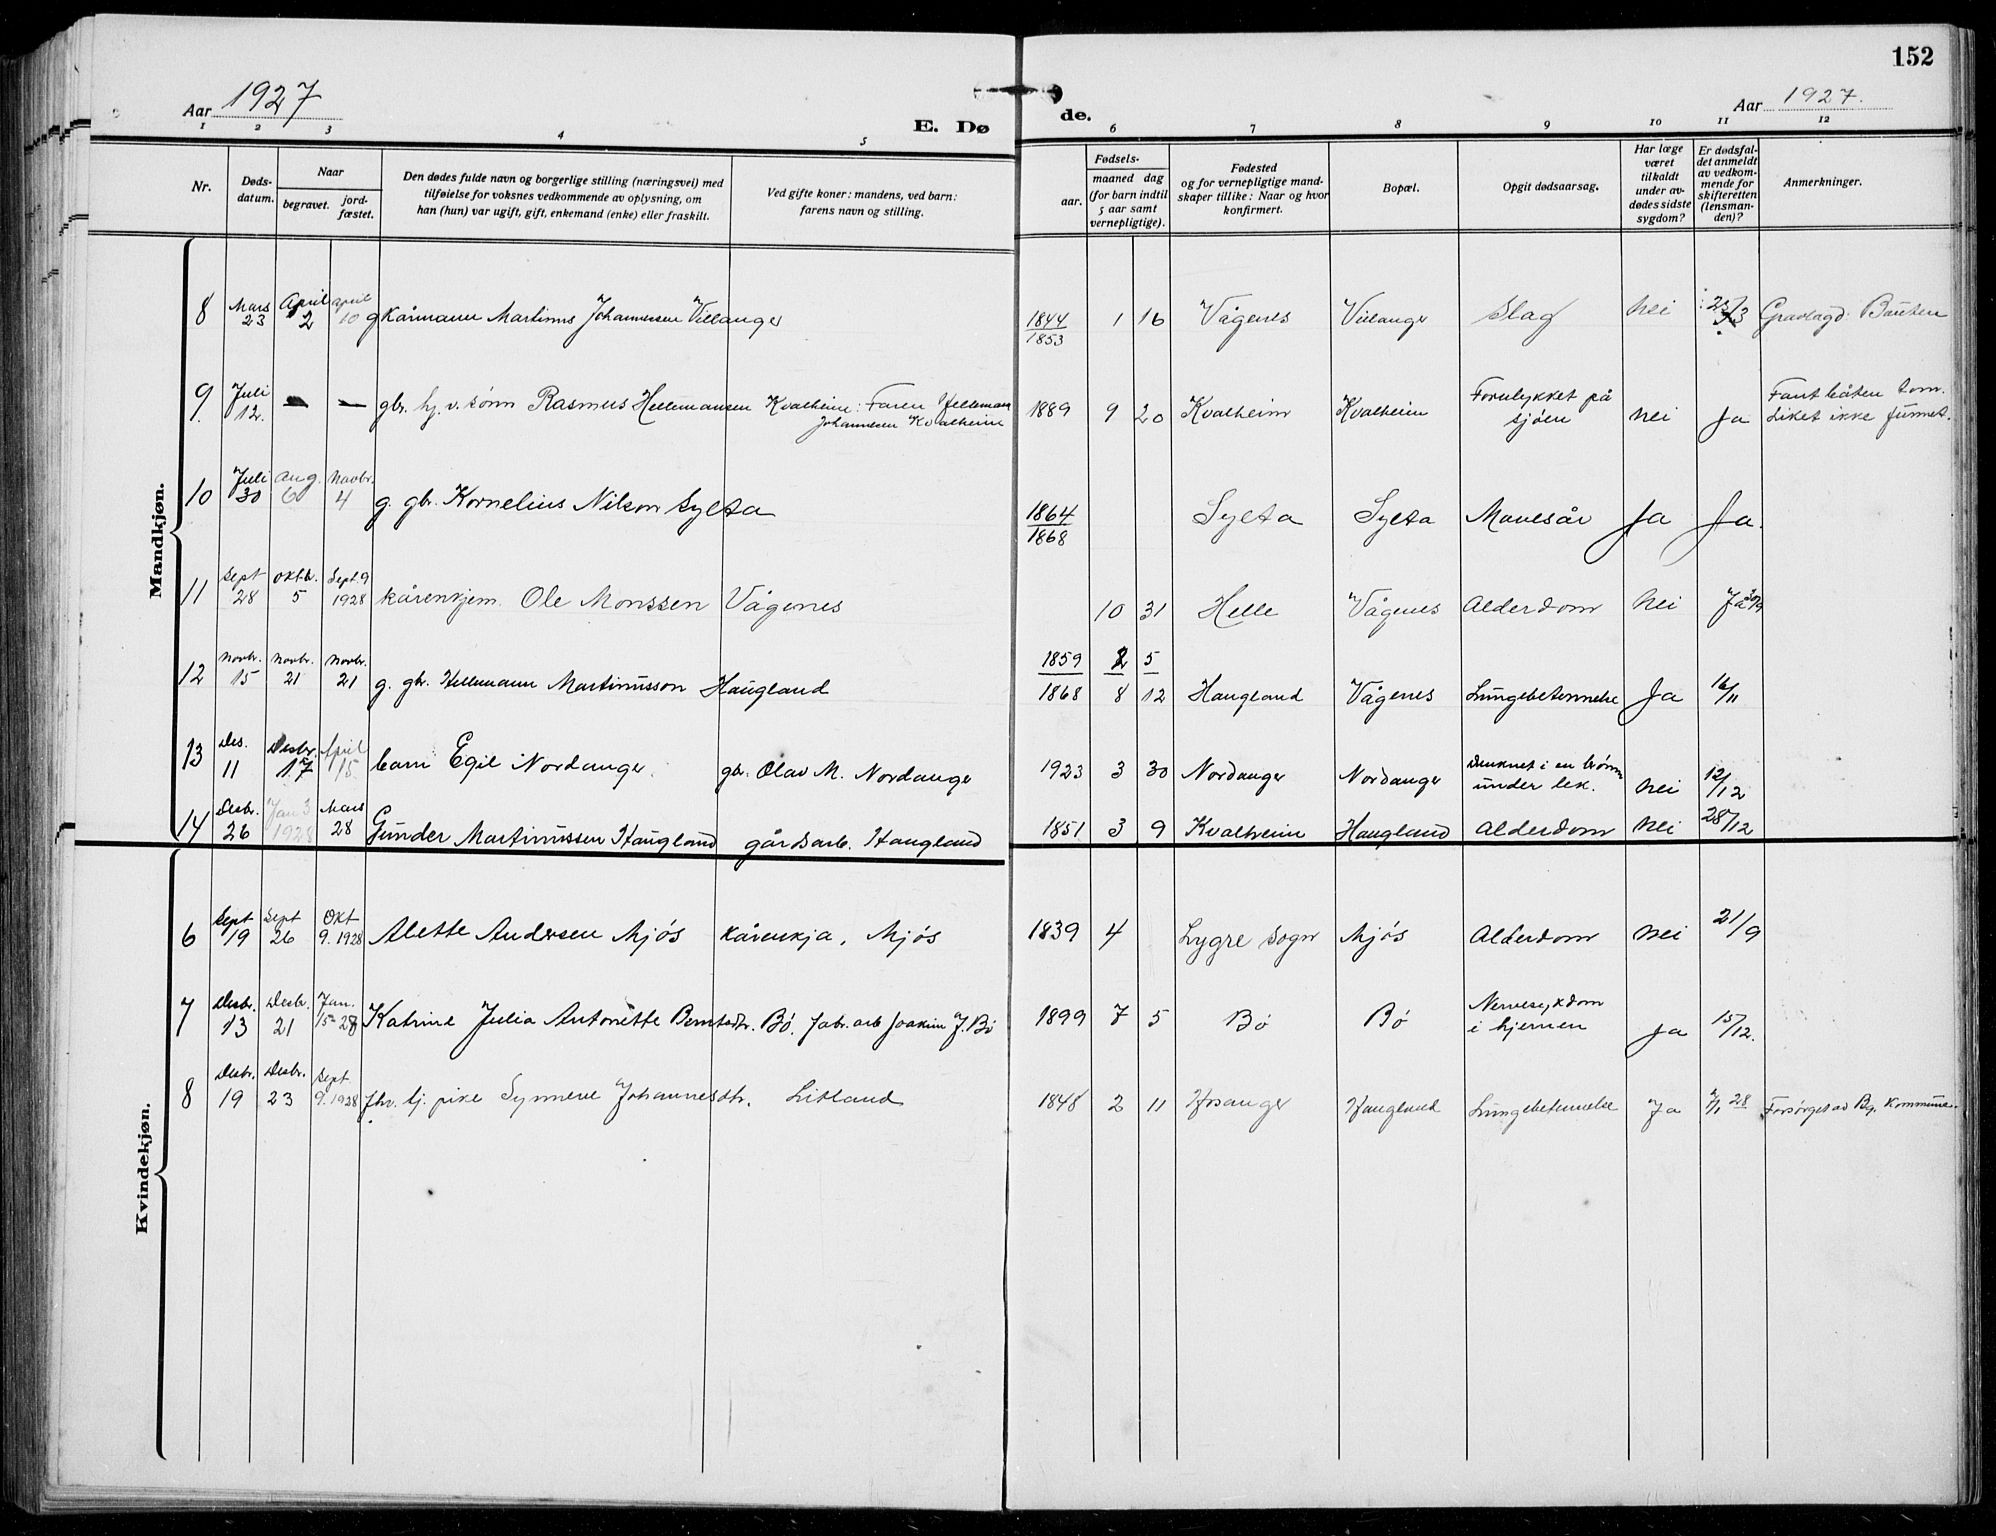 152
Aar 1927
Aar 1927.
E. Dø
de.
1 2 3 4 5 6 7 8 9 10 11 12
Nr.
Døds-
datum.
Naar
begravet.
jord-
fæstet.
Den dødes fulde navn og borgerlige stilling (næringsvei) med
tilføielse for voksnes vedkommende av oplysning, om
han (hun) var ugift, gift, enkemand (enke) eller fraskilt.
Ved gifte koner: mandens, ved barn:
farens navn og stilling.
Fødsels-
aar.
maaned dag
(for barn indtil
5 aar samt
vernepligtige).
Fødested
og for vernepligtige mand-
skaper tillike: Naar og hvor
konfirmert.
Bopæl.
Opgit dødsaarsag.
Har læge
været
tilkaldt
under av-
dødes sidste
sygdom?
Er dødsfal-
det anmeldt
av vedkom-
mende for
skifteretten
(lensman-
den)?
Anmerkninger.
Mandkjøn.
8 Mars 23 April 2 april 10 g kårmann Martinus Johannesen Villanger 1844 1853 1 16 Vågenes Villanger Slag Nei Gravlagd
9. Juli 12. — — gbr. hj. v. sønn Rasmus Hellemansen Kvalheim: Faren Hellemann
Johannesen Kvalheim 1889 9 20 Kvalheim Kvalheim Forulykket på
sjøen nei Ja Fant båten tom.
Liket ikke funnet.
10 Juli 30 Aug. 6 Novbr. 4 g. gbr. Kornelius Nilson Sylta 1864 1868 Sylta Sylta Mavesår Ja Ja.
11 Sept 28 Oktb. 5 Sept. 9 1928 kårenkjem. Ole Monssen Vågenes 10 31 Helle Vågenes Alderdom Nei Ja 30/9
12 Novbr. 15 Novbr. 21 Novbr. 21 g. gbr. Hellemann Martinusson Haugland 1859 2 5
1868 8 12 Haugland Vågenes Lungebetennelse Ja 16/11
13 Des. 11 Desbr. 17 April 15. barn Egil Nordanger. gbr. Olav M. Nordanger 1923 3 30 Nordanger Nordanger Druknet i en brønn
under lek. Nei 12/12
14 Desbr. 26 Jan 3 1928 Mars 28 Gunder Martinussen Haugland gårdsarb. Haugland 1851 3 9 Kvalheim Haugland Alderdom Nei 28/12
Kvindekjøn.
6 Sept 19 Sept 26 Okt 9. 1928 Alette Andersen Mjøs kårenkja, Mjøs 1839 4 Lygre sogn Mjøs Alderdom Nei 21/9
7 Desbr. 13 Desbr. 21 Jan. 15-28 Katrine Julia Antonette Berntsdtr. Bø. fabr. arb Joakim J. Bø 1899 7 5 Bø Bø Nervesykdom
i hjernen Ja 15/12.
8 Desbr. 19 Desbr. 23 Sept 9. 1928 fhv. tj. pike Synneve Johannesdtr. Litland 1848 2 11 Hosanger Haugland Lungebetennelse Ja 28 Forsørget av Bg. Kommune.